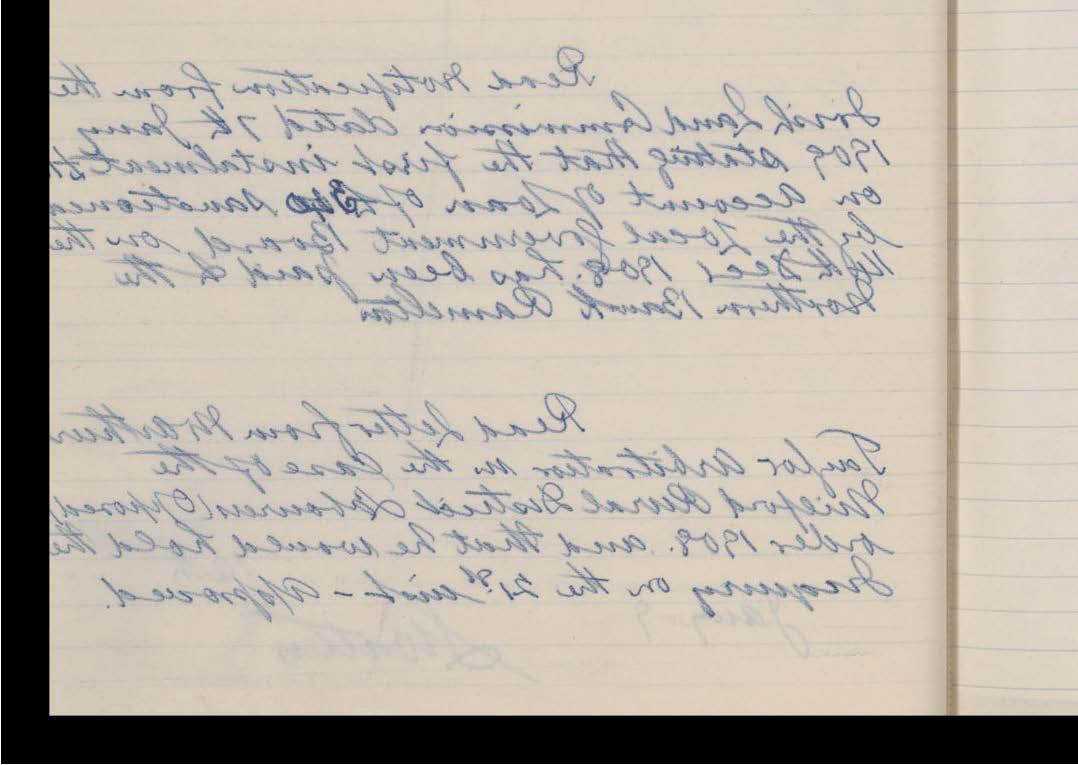 Read Notification from the
Irish Land Commission dated 7th Jany
1909 stating that the first instalment
on account of Loan of £ sanctioned
by the Local Government Board on the
16th Decr 1908. has been paid to the
Northern Bank Ramelton
Read Letter from
Taylor Arbitrator in the Case of the
Milford Rural District Labourers (Opposed)
order 1908. and that he would hold the
Inquiry on the 21st inst - Approved.